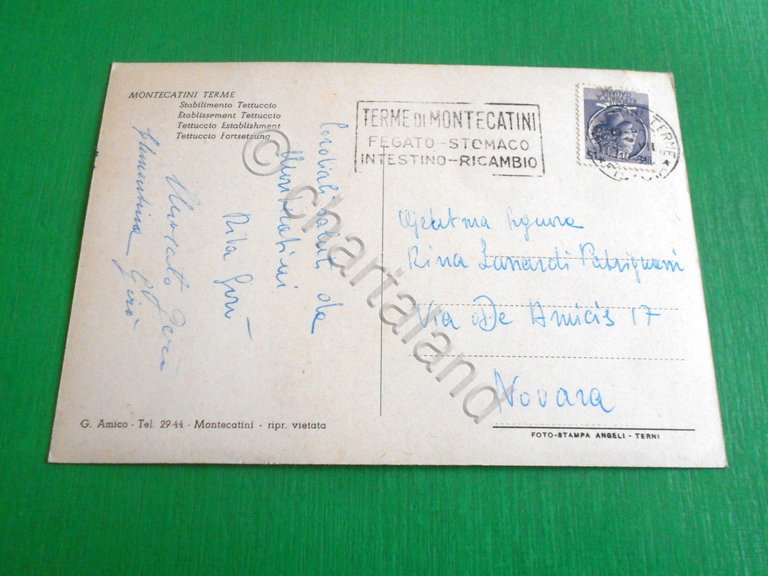 MONTECATINI TERME
Stabilimento Tettuccio
Etablissement Tettuccio
Tettuccio Establishment
Tettuccio Fortsetzung
TERME DI MONTECATINI
FEGATO-STOMACO
INTESTINO-RICAMBIO
TERME
Cordiali saluti da
Montecatini
Rita
Clementina
Rina Lanardi Patrignani
Via De Amicis 17
Novara
G. Amico - Tel. 29-44 - Montecatini - ripr. vietata
FOTO-STAMPA ANGELI - TERNI
© chartaland